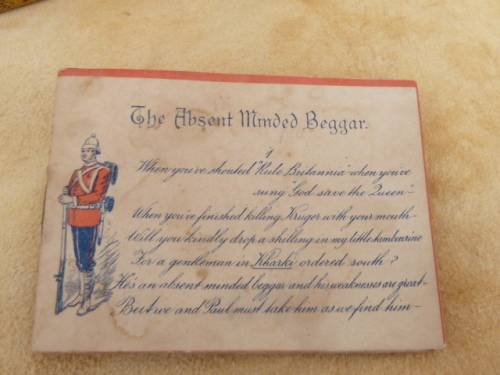 The Absent Minded Beggar.
When you've shouted "Rule Britannia" when you've
sung "God save the Queen"
When you've finished killing Kruger with your mouth—
Will you kindly drop a shilling in my little tambourine
For a gentleman in Kharki ordered south?
He's an absent minded beggar and his weaknesses are great—
But we and Paul must take him as we find him—